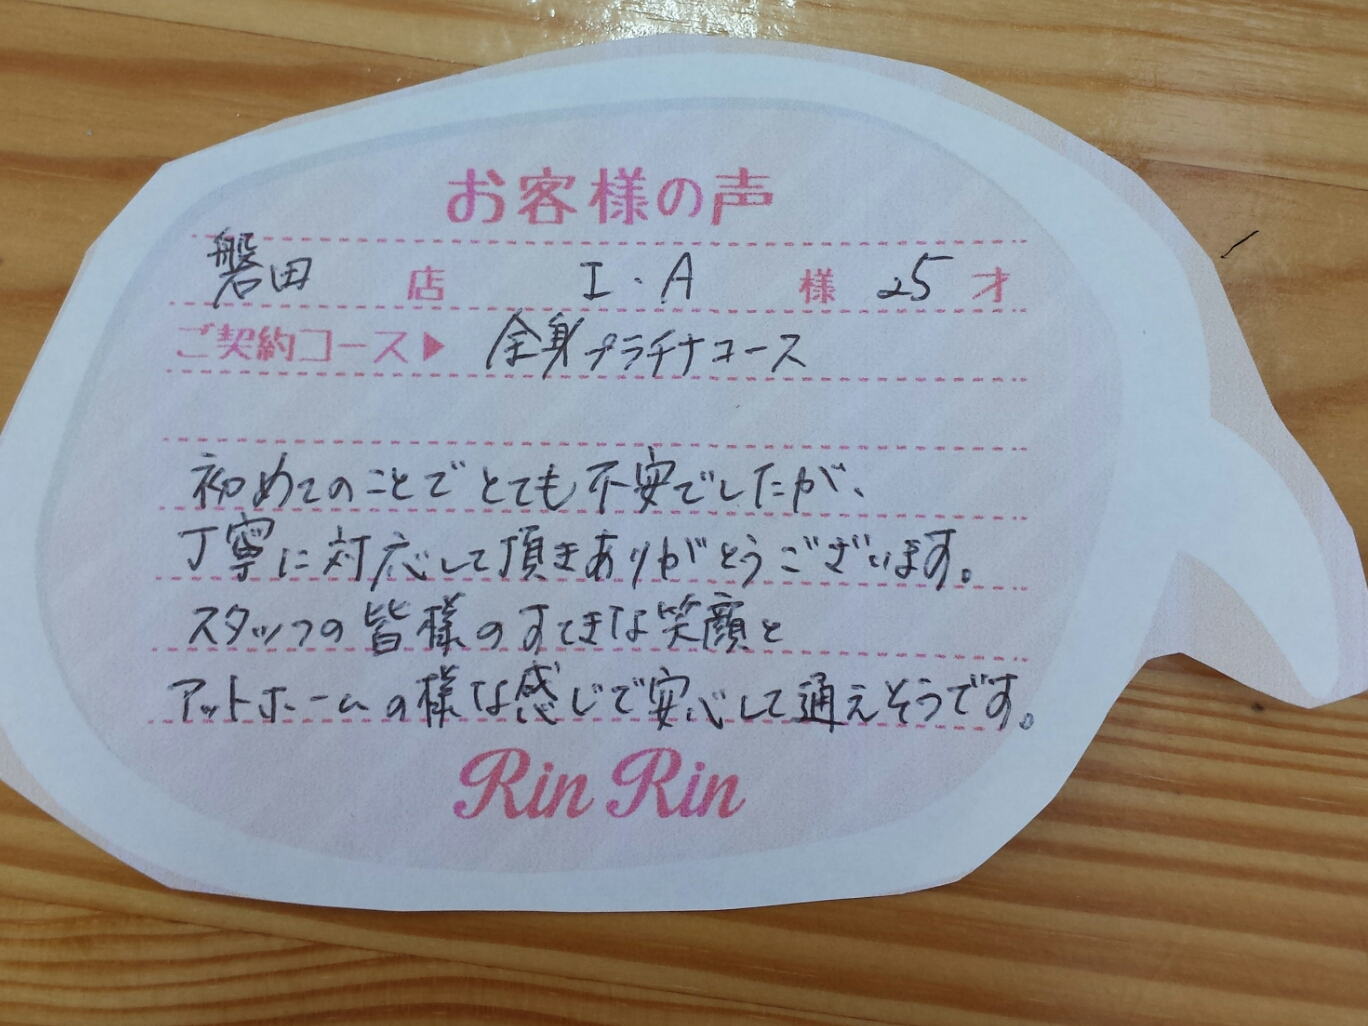 お客様の声
磐田 店 I.A 様 25 才
ご契約コース▶ 全身プラチナコース
初めてのことでとても不安でしたが、
丁寧に対応して頂きありがとうございます。
スタッフの皆様のすてきな笑顔と
アットホームの様な感じで安心して通えそうです。
Rin Rin